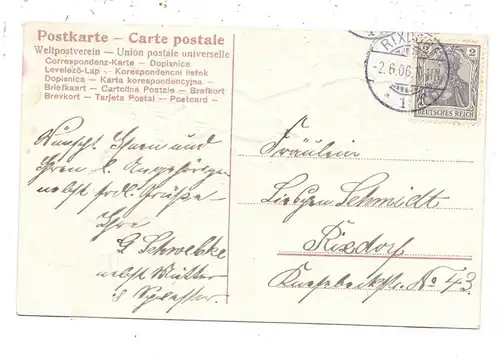 Postkarte – Carte postale
Weltpostverein – Union postale universelle
Correspondenz-Karte – Dopisnice
Levelező-Lap – Korespondencni listek
Dopisnica – Karta korespondencyjna
Briefkaart – Cartolina Postale – Brefkort
Brevkort – Tarjeta Postal – Postcard –
RIXDORF
2.6.06.
* 1
2 2
DEUTSCHES REICH
Wünscht Ihnen und
Ihren l. Angehörigen
nebst frdl. Grüße
Ihre
G. Schwebke
nebst Mutter
Fräulein
Schmidt
Rixdorf
Knesebeckstr. No 43.